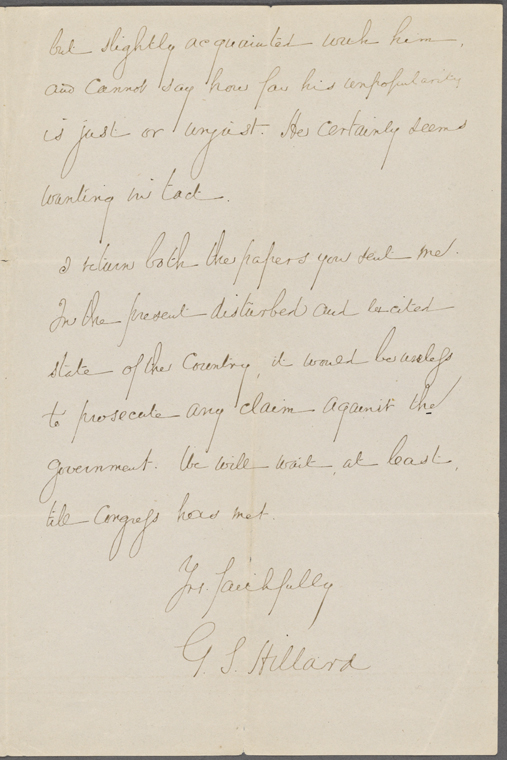 but slightly acquainted with him,
and cannot say how far his unpopularity
is just or unjust. He certainly seems
wanting in tact.
I return both the papers you sent me.
In the present disturbed and excited
state of the Country, it would be useless
to prosecute any claim against the
government. We will wait, at least,
till Congress has met.
Yrs. faithfully
G. S. Hillard